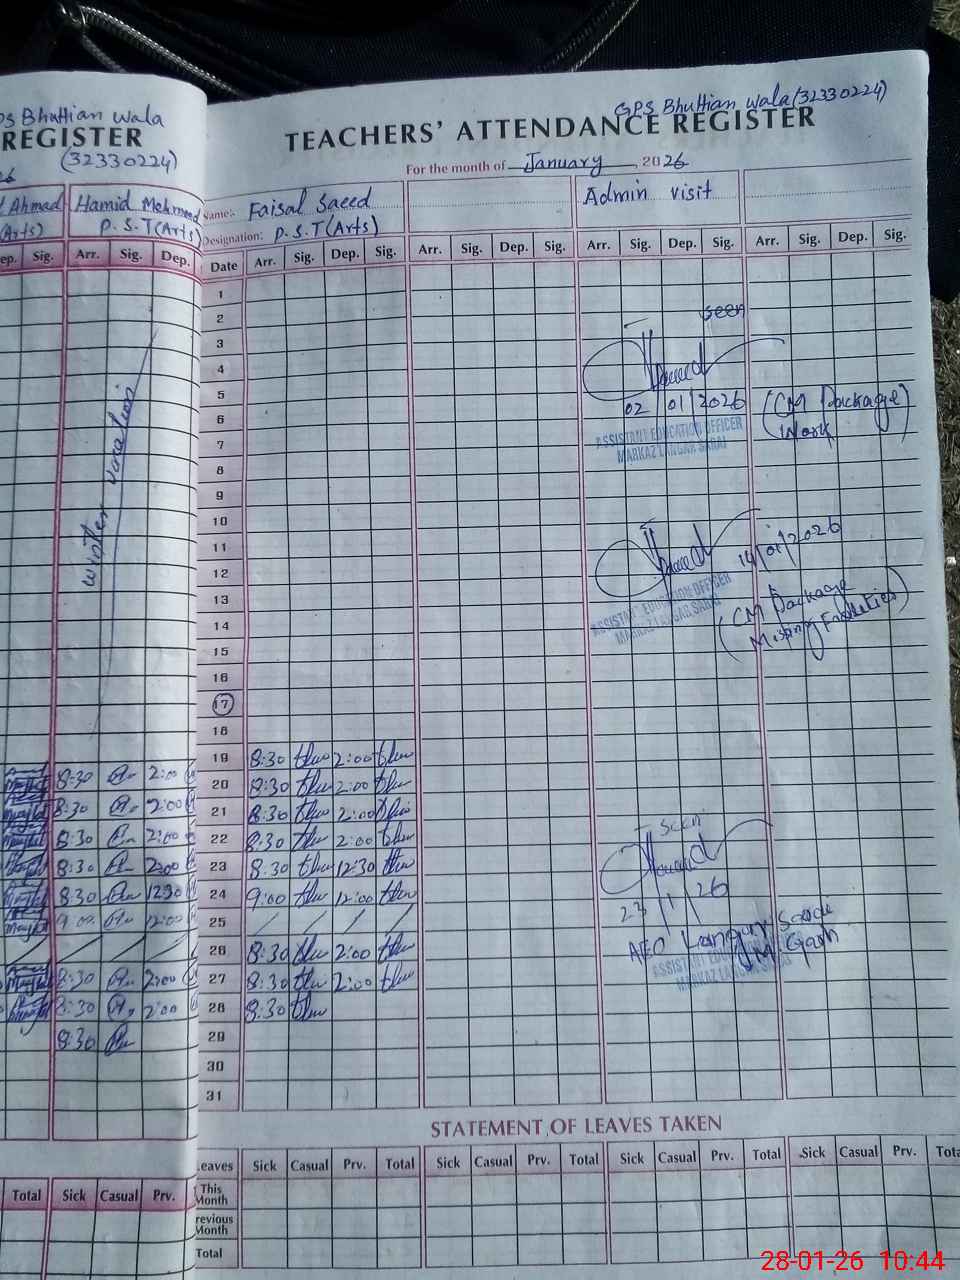 PS Bhuttian Wala
REGISTER
(32330224)
26
Ahmad Hamid Mehmood
(Arts) P.S.T (Arts)
ep. Sig. Arr. Sig. Dep.
winter vacation
8:30 2:00
8:30 2:00
8:30 2:00
8:30 2:00
8:30 12:30
9:00 12:00
8:30 2:00
8:30 2:00
8:30
Total Sick Casual Prv.
GPS Bhuttian Wala (32330224)
TEACHERS' ATTENDANCE REGISTER
For the month of January, 2026
Name:- Faisal Saeed Admin visit
Designation: P.S.T (Arts)
Date Arr. Sig. Dep. Sig. Arr. Sig. Dep. Sig. Arr. Sig. Dep. Sig. Arr. Sig. Dep. Sig.
1
2 seen
3
4
5
02/01/2026 (CM Package)
6 Work
ASSISTANT EDUCATION OFFICER
7 MARKAZ LANGAR SARAI
8
9
10
11 14/01/2026
12
ASSISTANT EDUCATION OFFICER
13 MARKAZ LANGAR SARAI
(CM Package
14 Missing Facilities)
15
16
17
18
19 8:30 2:00
20 8:30 2:00
21 8:30 2:00
22 8:30 2:00 seen
23 8:30 12:30
24 9:00 12:00 23/1/26
25
26 8:30 2:00 AEO Langar Sarai
M. Garh
27 8:30 2:00
ASSISTANT EDUCATION OFFICER
MARKAZ LANGAR SARAI
28 8:30
29
30
31
STATEMENT OF LEAVES TAKEN
Leaves Sick Casual Prv. Total Sick Casual Prv. Total Sick Casual Prv. Total Sick Casual Prv. Tota
This
Month
revious
Month
Total
28-01-26 10:44